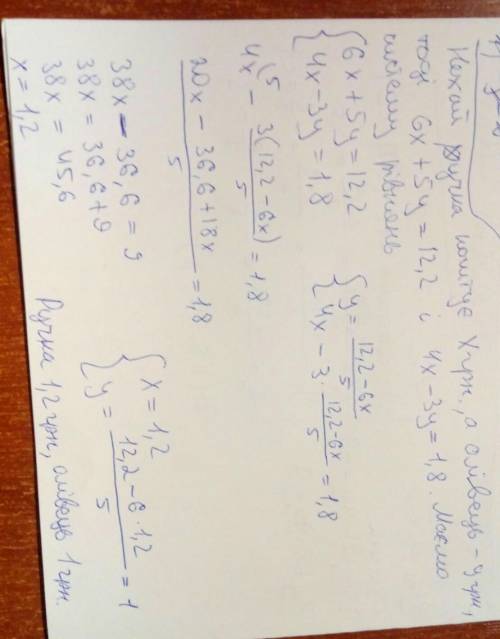 Нехай ручка коштує x грн., а олівець - y грн,
тоді 6x + 5y = 12,2 і 4x - 3y = 1,8. Маємо
систему рівнянь
{ 6x + 5y = 12,2
{ 4x - 3y = 1,8
{ y = (12,2 - 6x)/5
{ 4x - 3 · (12,2 - 6x)/5 = 1,8
4x(5 - 3(12,2 - 6x)/5 = 1,8
(20x - 36,6 + 18x)/5 = 1,8
38x - 36,6 = 9
38x = 36,6 + 9
38x = 45,6
x = 1,2
{ x = 1,2
{ y = (12,2 - 6 · 1,2)/5 = 1
Ручка 1,2 грн, олівець 1 грн.